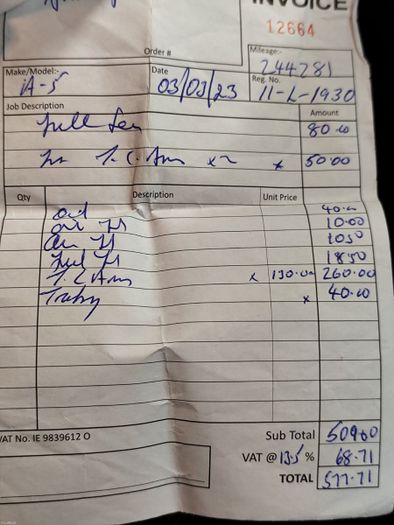 INVOICE
12664
Order #
Mileage:-
244281
Make/Model:-
iA-5
Date
03/03/23
Reg. No.
11-L-1930
Job Description
Amount
Full Ser
80.00
T.C. Arm x2 x 50.00
Qty
Description
Unit Price
oil 40.00
oil 10.00
Air 10.50
Fuel 18.50
T.C Arm x 130.00 260.00
x 40.00
VAT No. IE 9839612 O
Sub Total 509.00
VAT @ 13.5 % 68.71
TOTAL 577.71